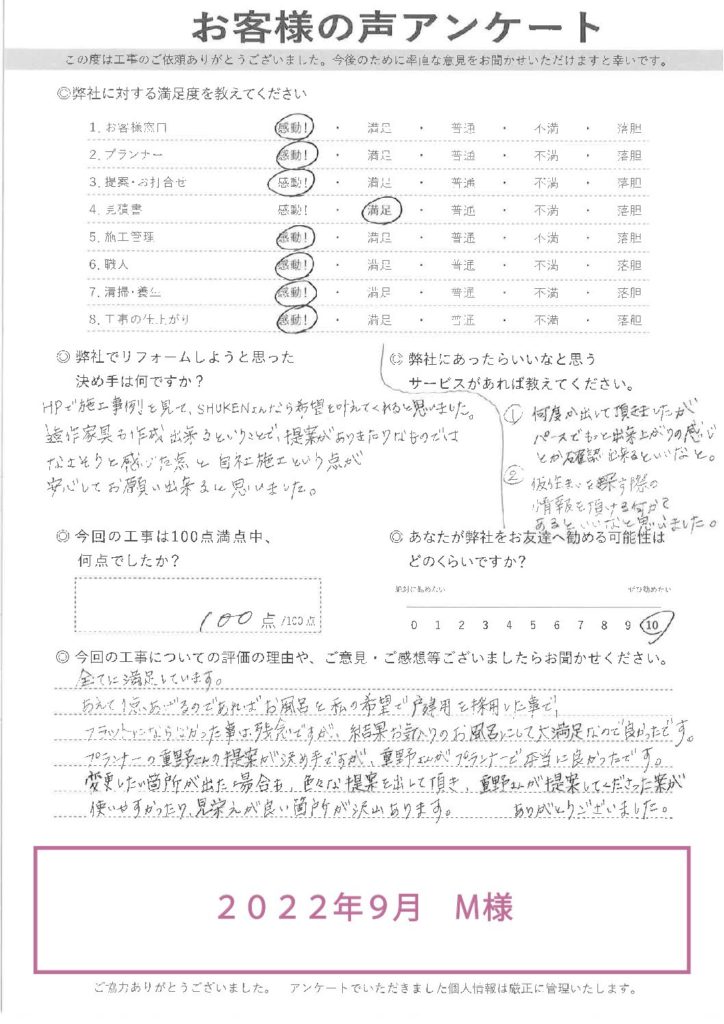 お客様の声アンケート
この度は工事のご依頼ありがとうございました。今後のために率直な意見をお聞かせいただけますと幸いです。
◎弊社に対する満足度を教えてください
1. お客様窓口 感動! ・ 満足 ・ 普通 ・ 不満 ・ 落胆
2. プランナー 感動! ・ 満足 ・ 普通 ・ 不満 ・ 落胆
3. 提案・お打合せ 感動! ・ 満足 ・ 普通 ・ 不満 ・ 落胆
4. 見積書 感動! ・ 満足 ・ 普通 ・ 不満 ・ 落胆
5. 施工管理 感動! ・ 満足 ・ 普通 ・ 不満 ・ 落胆
6. 職人 感動! ・ 満足 ・ 普通 ・ 不満 ・ 落胆
7. 清掃・養生 感動! ・ 満足 ・ 普通 ・ 不満 ・ 落胆
8. 工事の仕上がり 感動! ・ 満足 ・ 普通 ・ 不満 ・ 落胆
◎ 弊社でリフォームしようと思った
決め手は何ですか?
HPで施工事例を見て、SHUKENさんなら希望を叶えてくれると思いました。
造作家具も作成出来るということで、提案がありきたりなものでは
なさそうと感じた点と自社施工という点が
安心してお願い出来ると思いました。
◎ 弊社にあったらいいなと思う
サービスがあれば教えてください。
① 何度か出して頂きましたが
パースでもっと出来上がりの感じ
とか確認出来るといいなと。
② 仮住まいを探す際の
情報を頂ける何かが
あるといいなと思いました。
◎ 今回の工事は100点満点中、
何点でしたか?
100 点 /100点
◎ あなたが弊社をお友達へ勧める可能性は
どのくらいですか?
絶対に勧めない ぜひ勧めたい
0 1 2 3 4 5 6 7 8 9 10
◎ 今回の工事についての評価の理由や、ご意見・ご感想等ございましたらお聞かせください。
全てに満足しています。
あえて1点あげるのであればお風呂を私の希望で戸建用を採用した事で、
フラットにならなかった事は残念ですが、結果お気に入りのお風呂にして大満足なので良かったです。
プランナーの重野さんの提案が決め手ですが、重野さんがプランナーで本当に良かったです。
変更したい箇所が出た場合も、色々な提案を出して頂き、重野さんが提案してくださった案が
使いやすかったり、見栄えが良い箇所が沢山あります。 ありがとうございました。
2022年9月 M様
ご協力ありがとうございました。 アンケートでいただきました個人情報は厳正に管理いたします。